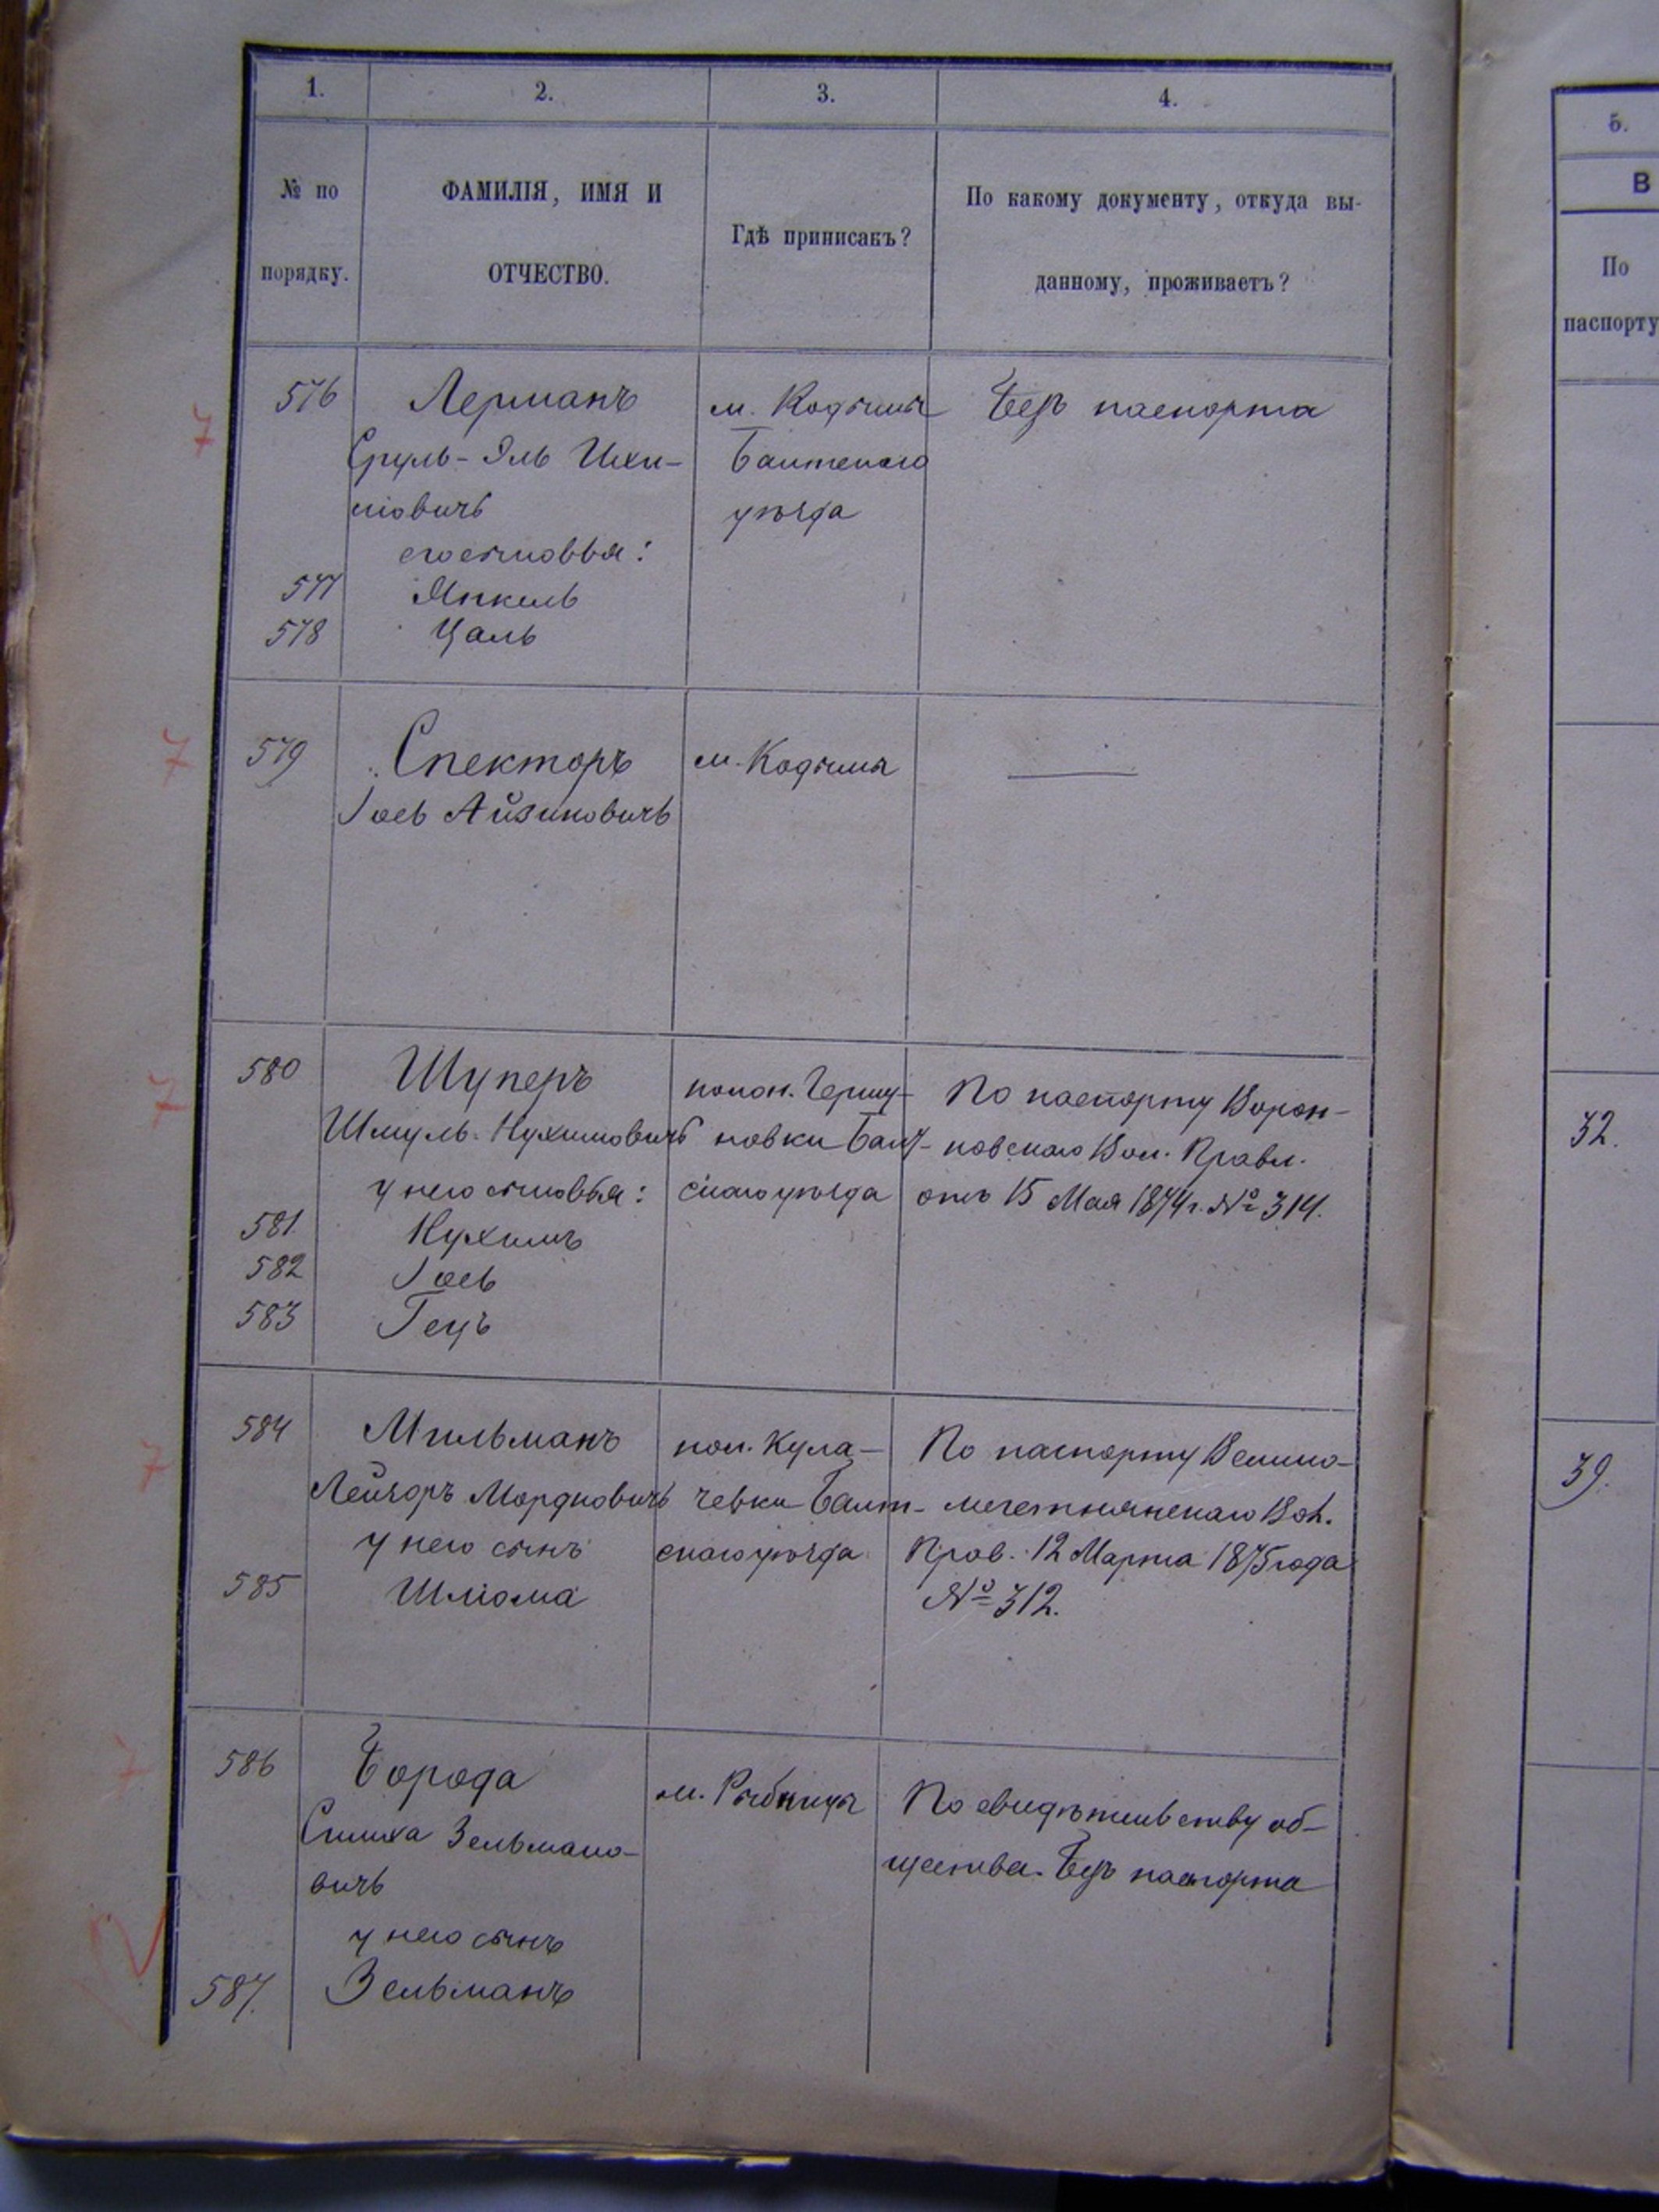 1.
2.
3.
4.
№ по
порядку.
ФАМИЛІЯ, ИМЯ И
ОТЧЕСТВО.
Гдѣ приписанъ?
По какому документу, откуда вы-
данному, проживаетъ?
5.
В
По
паспорту
576
Лерманъ
Сруль-Эль Ихи-
ловичъ
его сыновья:
577
Янкель
578
Цаль
м. Кодыма
Балтскаго
уѣзда
Безъ паспорта
579
Спекторъ
Іось Айзиковичъ
м. Кодыма
580
Шуперъ
Шмуль Нухимовичъ
у него сыновья:
581
Нухимъ
582
Іось
583
Гецъ
колон. Гершу-
новки Балт-
скаго уѣзда
По паспорту Ворон-
ковскаго Вол. Правл.
отъ 15 Мая 1874 г. № 314.
32.
584
Мильманъ
Лейзоръ Мордковичъ
у него сынъ
585
Шліома
кол. Кула-
чевки Балт-
скаго уѣзда
По паспорту
Вол.
Прав. 12 Марта 1875 года
№ 312.
39.
586
Борода
Симха Зельмано-
вичъ
у него сынъ
587.
Зельманъ
м. Рыбницы
По свидѣтельству об-
щества. Безъ паспорта